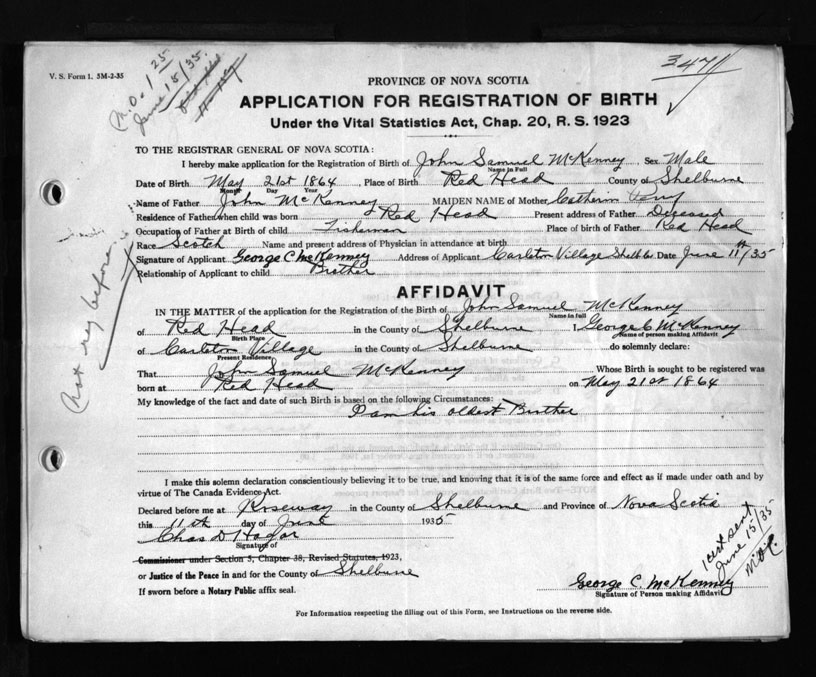 V. S. Form 1. 5M-2-35
M.O. 1.25
June 15/35
3471
PROVINCE OF NOVA SCOTIA
APPLICATION FOR REGISTRATION OF BIRTH
Under the Vital Statistics Act, Chap. 20, R. S. 1923
TO THE REGISTRAR GENERAL OF NOVA SCOTIA:
I hereby make application for the Registration of Birth of John Samuel McKenney, Sex Male
Name in Full
Date of Birth May 21st 1864, Place of Birth Red Head County of Shelburne
Month Day Year
Name of Father John McKenney MAIDEN NAME of Mother Catherin Perry
Residence of Father when child was born Red Head Present address of Father Deceased
Occupation of Father at Birth of child Fisherman Place of birth of Father Red Head
Race Scotch Name and present address of Physician in attendance at birth
Signature of Applicant George C McKenney Address of Applicant Carleton Village Shelb Co Date June 11th/35
Relationship of Applicant to child Brother
Not reg before.
AFFIDAVIT
IN THE MATTER of the application for the Registration of the Birth of John Samuel McKenney
Name in full
of Red Head in the County of Shelburne I George C McKenney
Birth Place Name of person making Affidavit
of Carleton Village in the County of Shelburne do solemnly declare:
Present Residence
That John Samuel McKenney Whose Birth is sought to be registered was
born at Red Head on May 21st 1864
My knowledge of the fact and date of such Birth is based on the following Circumstances:
I am his oldest Brother
I make this solemn declaration conscientiously believing it to be true, and knowing that it is of the same force and effect as if made under oath and by
virtue of The Canada Evidence Act.
Declared before me at Roseway in the County of Shelburne and Province of Nova Scotia
this 11th day of June 1935
Chas D Hagar
Signature of
Commissioner under Section 5, Chapter 38, Revised Statutes, 1923,
or Justice of the Peace in and for the County of Shelburne
If sworn before a Notary Public affix seal.
1 cert sent
June 15/35
George C. McKenney
Signature of Person making Affidavit
For Information respecting the filling out of this Form, see Instructions on the reverse side.